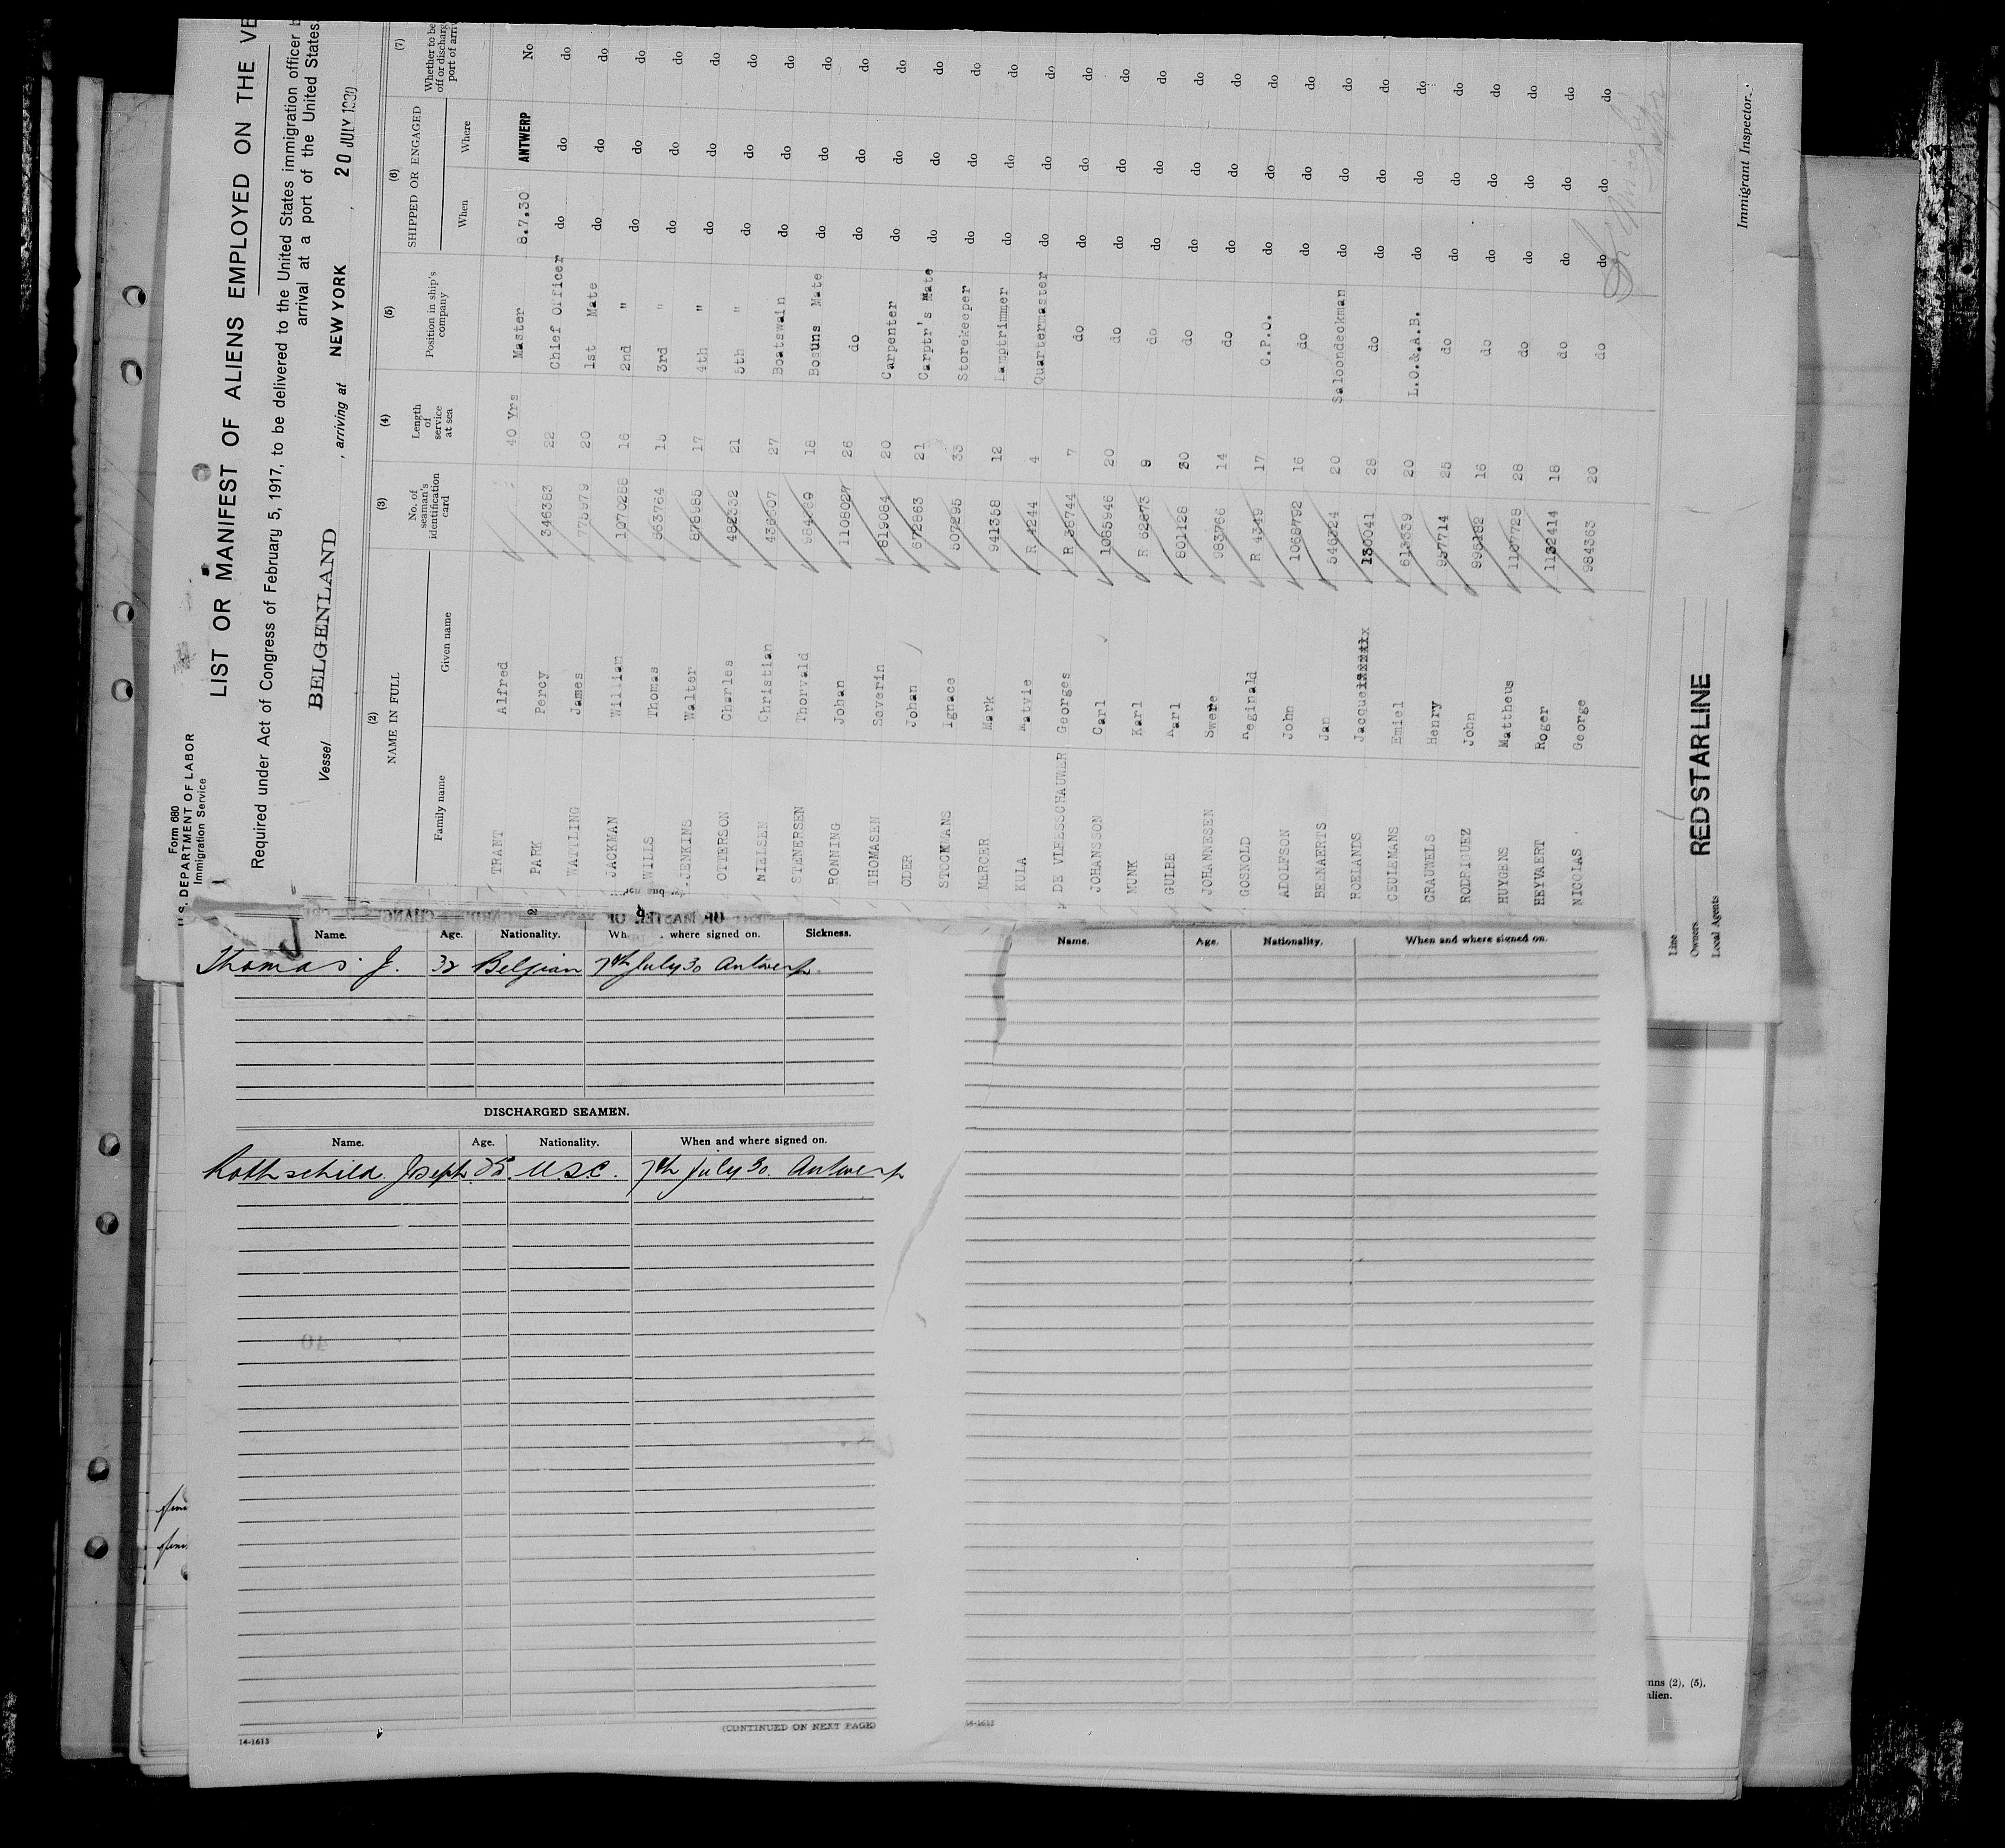 Form 680
U.S. DEPARTMENT OF LABOR
Immigration Service
LIST OR MANIFEST OF ALIENS EMPLOYED ON THE VE
Required under Act of Congress of February 5, 1917, to be delivered to the United States immigration officer b
arrival at a port of the United States.
Vessel BELGENLAND , arriving at NEW YORK , 20 JULY 1930
(2) (3) (4) (5) (6) (7)
NAME IN FULL No. of seaman's identification card Length of service at sea Position in ship's company SHIPPED OR ENGAGED Whether to be off or discharg port of arri
Family name Given name When Where
TRANT Alfred 40 Yrs Master 8.7.30 ANTWERP No
PARK Percy 346383 22 Chief Officer do do do
WATTLING James 775979 20 1st Mate do do do
JACKMAN William 1070288 16 2nd " do do do
WILLS Thomas 863764 15 3rd " do do do
JENKINS Walter 878985 17 4th " do do do
OTTERSON Charles 482332 21 5th " do do do
NIELSEN Christian 436607 27 Boatswain do do do
STENERSEN Thorvald 18 Bosuns Mate do do do
RONNING Johan 1108027 26 do do do do
THOMASEN Severin 819084 20 Carpenter do do do
ODER Johan 672863 21 Carptr's Mate do do do
STOCKMANS Ignace 507295 33 Storekeeper do do do
MERCER Mark 941358 12 Lamptrimmer do do do
KULA Matvie R 4 Quartermaster do do do
DE VLEESSCHAUWER Georges R 7 do do do do
JOHANSSON Carl 1085946 20 do do do do
MUNK Karl R 9 do do do do
GULBE Karl 801128 30 do do do do
JOHANNESEN Swere 983766 14 do do do do
GOSNOLD Reginald R 17 C.P.O. do do do
ADOLFSON John 1068792 16 do do do do
BERNAERTS Jan 546324 20 Saloondeckman do do do
ROELANDS Jacque 130041 28 do do do do
CEULEMANS Emiel 613339 20 L.O.&.A.B. do do do
CRAUWELS Henry 957714 25 do do do do
RODRIGUEZ John 16 do do do do
HUYGENS Mattheus 1107728 28 do do do do
HEYVAERT Roger 1132414 18 do do do do
NICOLAS George 984363 20 do do do do
Line
Owners RED STAR LINE
Local Agents
Immigrant Inspector.
Name. Age. Nationality. Wh where signed on. Sickness.
Thomas J. 32 Belgian 7th July 30 Antwerp
DISCHARGED SEAMEN.
Name. Age. Nationality. When and where signed on.
Rothschild Joseph 25 U.S.C. 7th July 30. Antwerp
(CONTINUED ON NEXT PAGE)
14-1613
Name. Age. Nationality. When and where signed on.
14-1613
mns (2), (5),
alien.